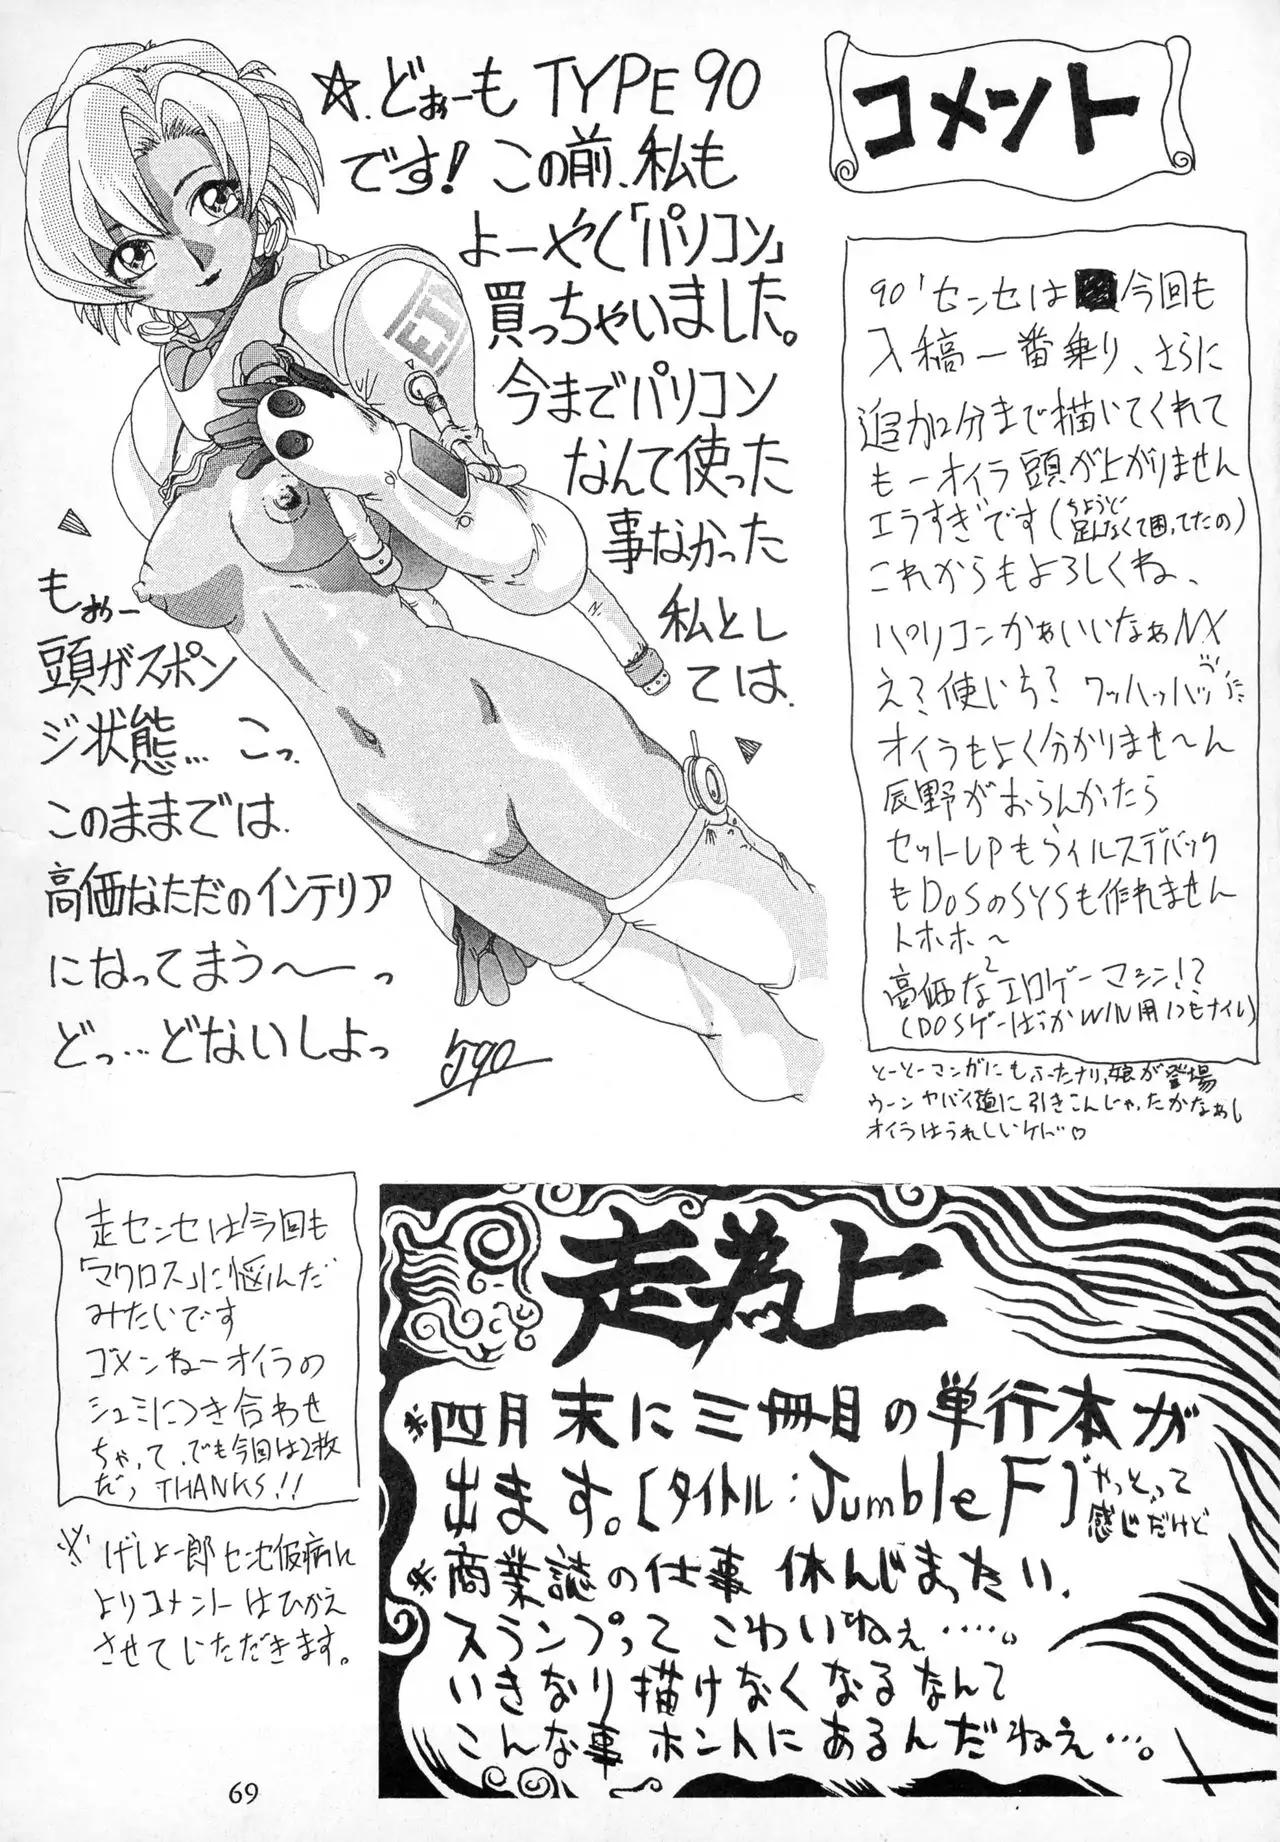 コメント
☆.どぉーも TYPE 90
です! この前、私も
よーやく「パソコン」
買っちゃいました。
今までパソコン
なんて使った
事なかった
私とし
ては、
もぉー
頭がスポン
ジ状態… こっ、
このままでは、
高価なただのインテリア
になってまう〜っ
どっ…どないしよっ
T90
EIN
90'センセは 今回も
入稿一番乗り、さらに
追加2分まで描いてくれて
もーオイラ頭が上がりません
エラすぎです(ちょうど足んなくて困ってたの)
これからもよろしくね、
パソコンかぁいいなぁNX
え?使いち? ワッハッハッ
オイラもよく分かりませ〜ん
辰野がおらんかたら
セットUPもウィルスデバック
もDOSのSYSも作れません
トホホ〜
高価な エロゲーマシン!?
(DOSゲーばっかWIN用1つもナイし)
とーとーマンガにもふーたナリっ娘が登場
ウーン ヤバイ道に引きこんじゃったかなぁし
オイラはうれしいケド♡
走センセは今回も
「マクロス」に悩んだ
みたいです
ゴメンねーオイラの
シュミにつき合わせ
ちゃって、でも今回は2枚
だっ THANKS!!
※げしょ一郎センセ仮病に
よりコメントはひかえ
させていただきます。
走為上
※四月末に三冊目の単行本が
出ます。[タイトル:Jumble F]やっとって感じだけど
※商業誌の仕事 休んじまったい、
スランプって こわいねぇ……。
いきなり描けなくなるなんて
こんな事ホントにあるんだねぇ…。
69